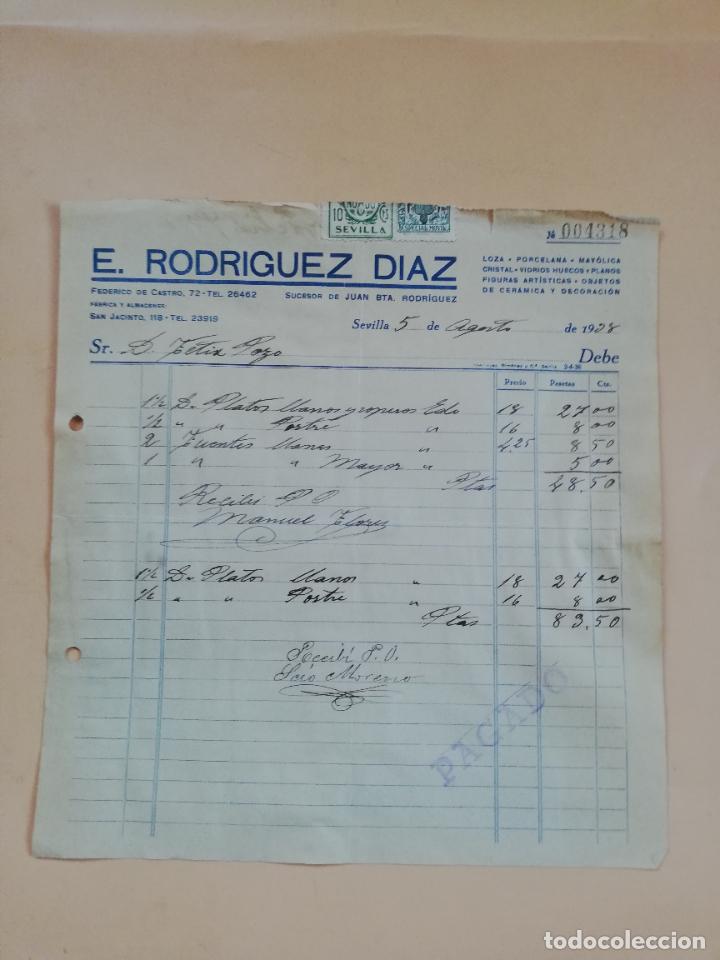 10 Cs
SEVILLA
ESPECIAL MOVIL
№ 004318
E. RODRIGUEZ DIAZ
LOZA • PORCELANA • MAYÓLICA
CRISTAL • VIDRIOS HUECOS • PLANOS
FIGURAS ARTÍSTICAS • OBJETOS
DE CERÁMICA Y DECORACIÓN
FEDERICO DE CASTRO, 72 - TEL. 26462
SUCESOR DE JUAN BTA. RODRÍGUEZ
FÁBRICA Y ALMACENES:
SAN JACINTO, 118 - TEL. 23919
Sevilla 5 de Agosto de 1938
Sr. D. Felix Pozo Debe
Precio Pesetas Cts.
1½ Dna Platos llanos y soperos Edo 18 27 00
½ " " Postre " 16 8 00
2 Fuentes llanas " 4.25 8 50
1 " " Mayor " 5 00
Ptas 48.50
Recibi P.O.
Manuel Florez
1½ Dna Platos llanos " 18 27 00
½ " " Postre " 16 8 00
Ptas 83.50
Recibí P.O.
Moreno
PAGADO
todocoleccion.net